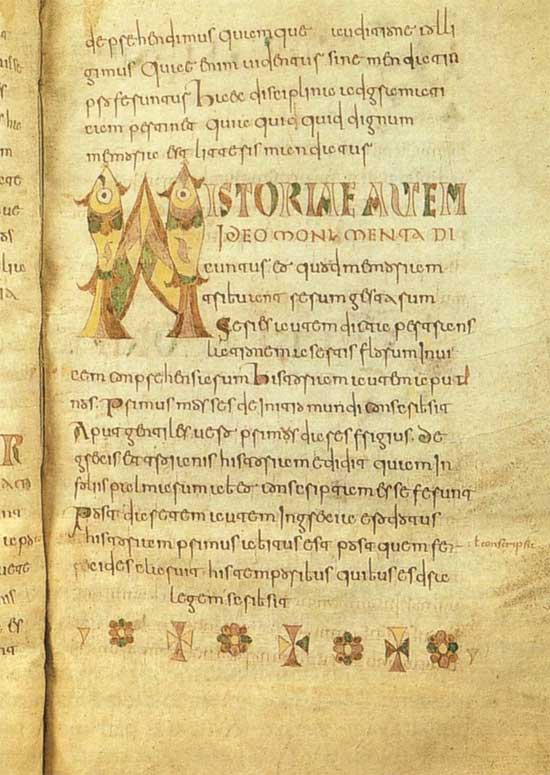 deprehendimus quam que auditione colli
gimus Quae enim videntur sine mendacio
proferuntur Haec disciplina adgramati
cam pertinet quia quid quid dignum
memoria est litteris mandatur
HISTORIAE AUTEM
IDEO MONUMENTA DI
cuntur eo quod memoriam
tribuant rerum gestarum
Series autem dicta per trans
lationem a sertis florum invi
cem conprehensarum historiam autem aput
nos. Primus moyses de initio mundi conscribsit
Aput gentiles uero primus dares frigius. de
grecis et troianis historiam edidit quam in
foliis palmarum ab eo conscriptam esse ferunt
Post daretem autem in grecia erodotus
historiam primus abitus est post quem fer
ecides claruit his temporibus quibus esdras
legem scribsit